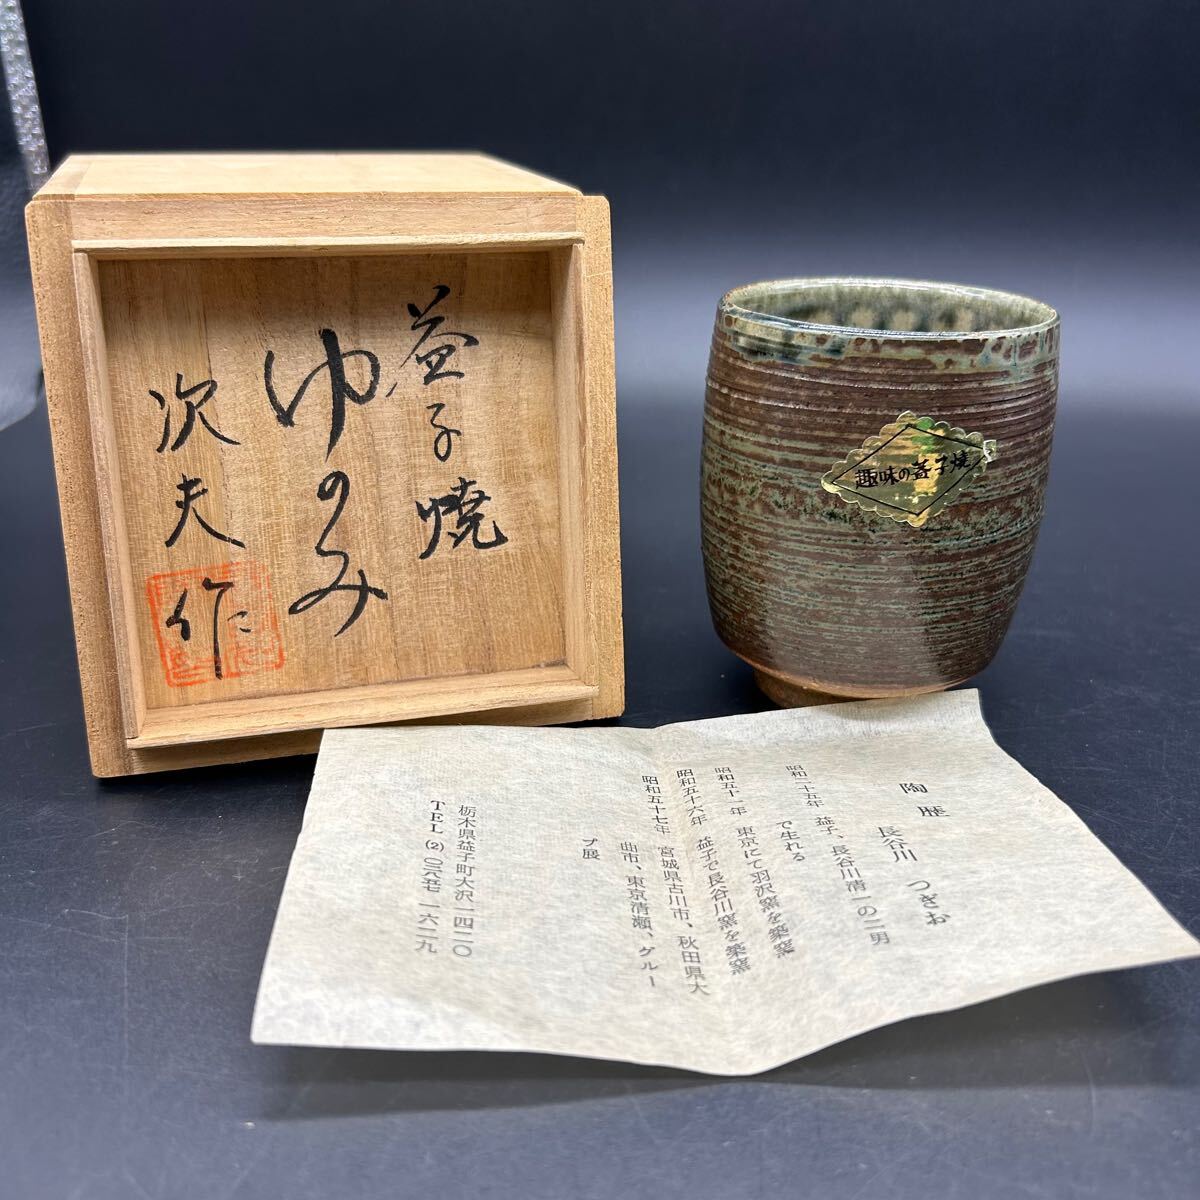 益子焼
ゆのみ
次夫作
趣味の益子焼
陶歴
長谷川 つぎお
昭和二十五年 益子、長谷川清一の二男
で生れる
昭和五十一年 東京にて羽沢窯を築窯
昭和五十六年 益子で長谷川窯を築窯
昭和五十七年 宮城県古川市、秋田県大
曲市、東京清瀬、グルー
プ展
栃木県益子町大沢一四二〇
TEL(2)〇二八五七 一六二九